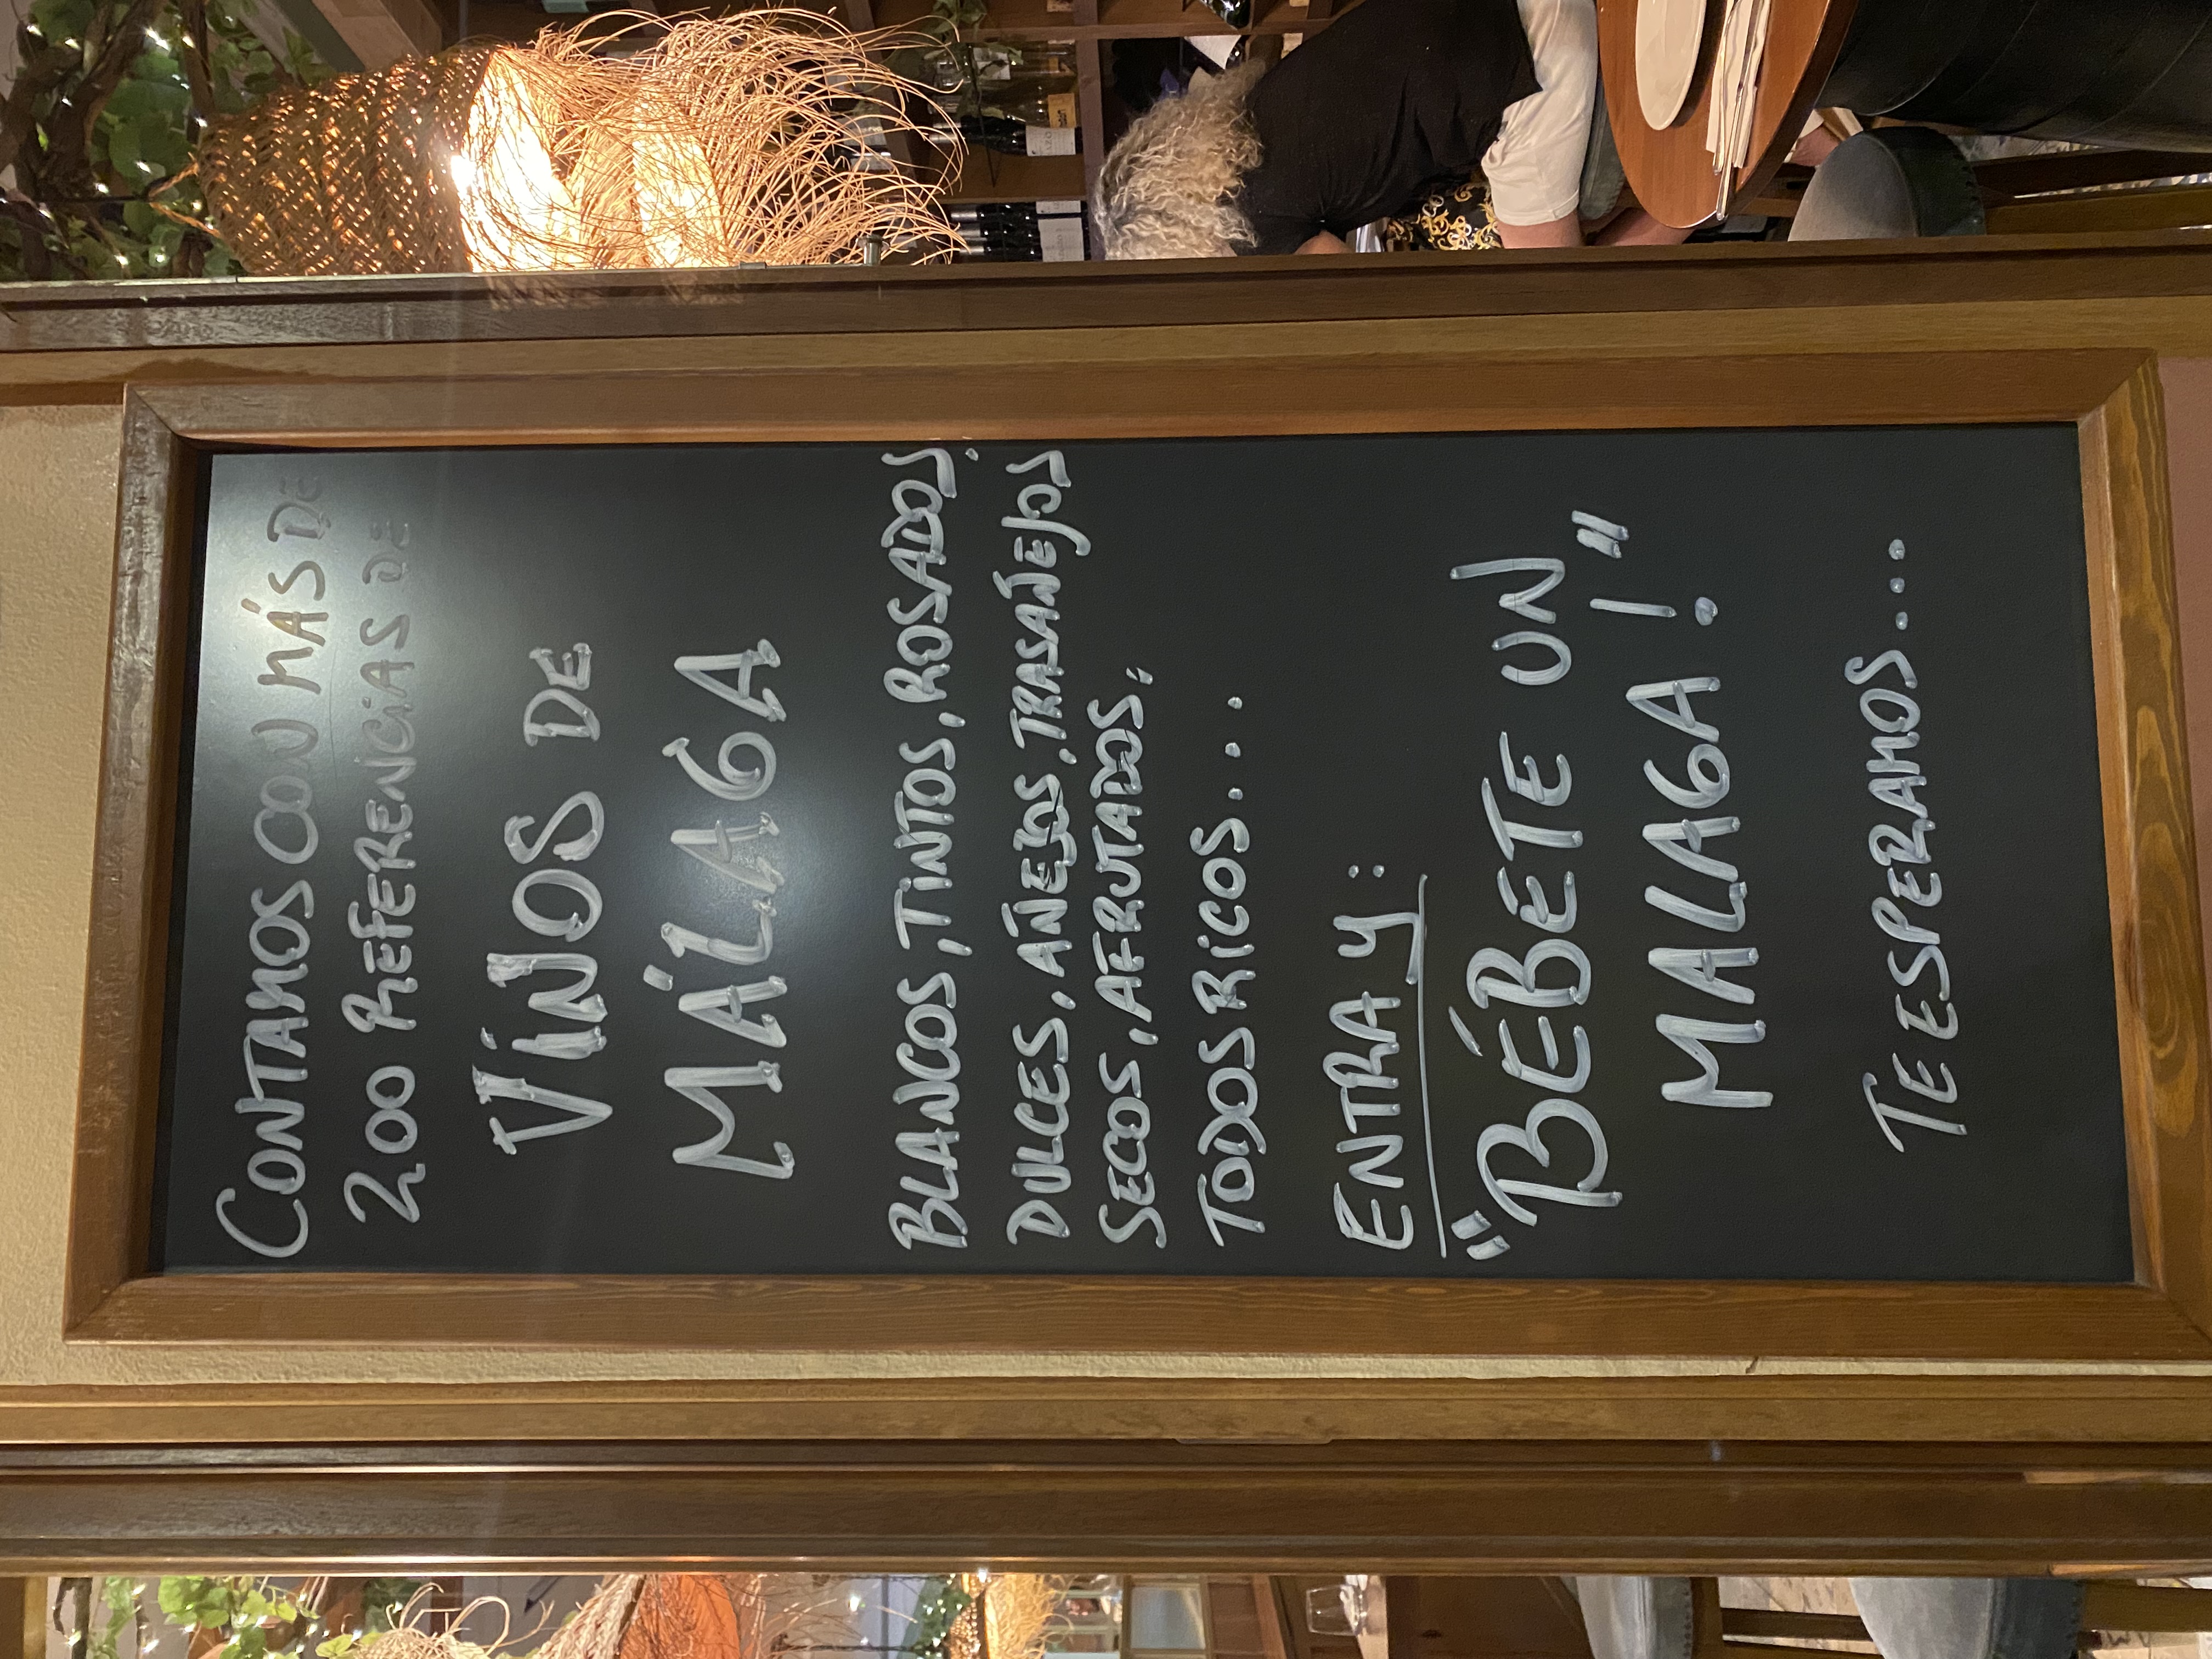 CONTAMOS CON MÁS DE
200 REFERENCIAS DE
VINOS DE
MÁLAGA
BLANCOS, TINTOS, ROSADOS,
DULCES, AÑEJOS, TRASAÑEJOS
SECOS, AFRUTADOS,
TODOS RICOS....
ENTRA Y:
"BÉBETE UN
MALAGA!"
TE ESPERAMOS...